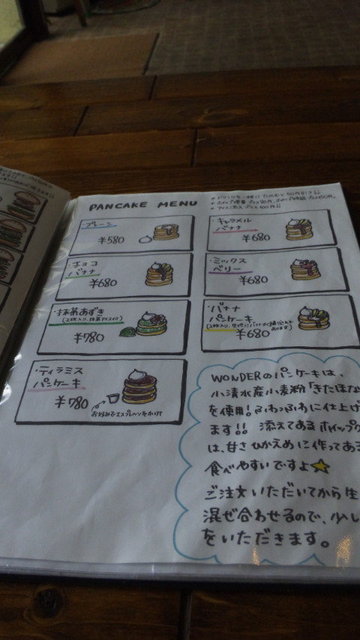 PANCAKE MENU
プレーン
¥580
・キャラメル
バナナ
¥680
チョコ
バナナ
¥680
・ミックス
ベリー
¥680
・抹茶あずき
¥780
・バナナ
パンケーキ
¥680
・ティラミス
パンケーキ
¥780
お好みでエスプレッソをかけて
WONDERのパンケーキは、
小清水産小麦粉「きたほなみ
を使用!ふわふわに仕上げ
ます!! 添えてあるホイップク
は、甘さひかえめに作ってある
食べやすいですよ☆
ご注文いただいてから生
混ぜ合わせるので、少し
をいただきます。